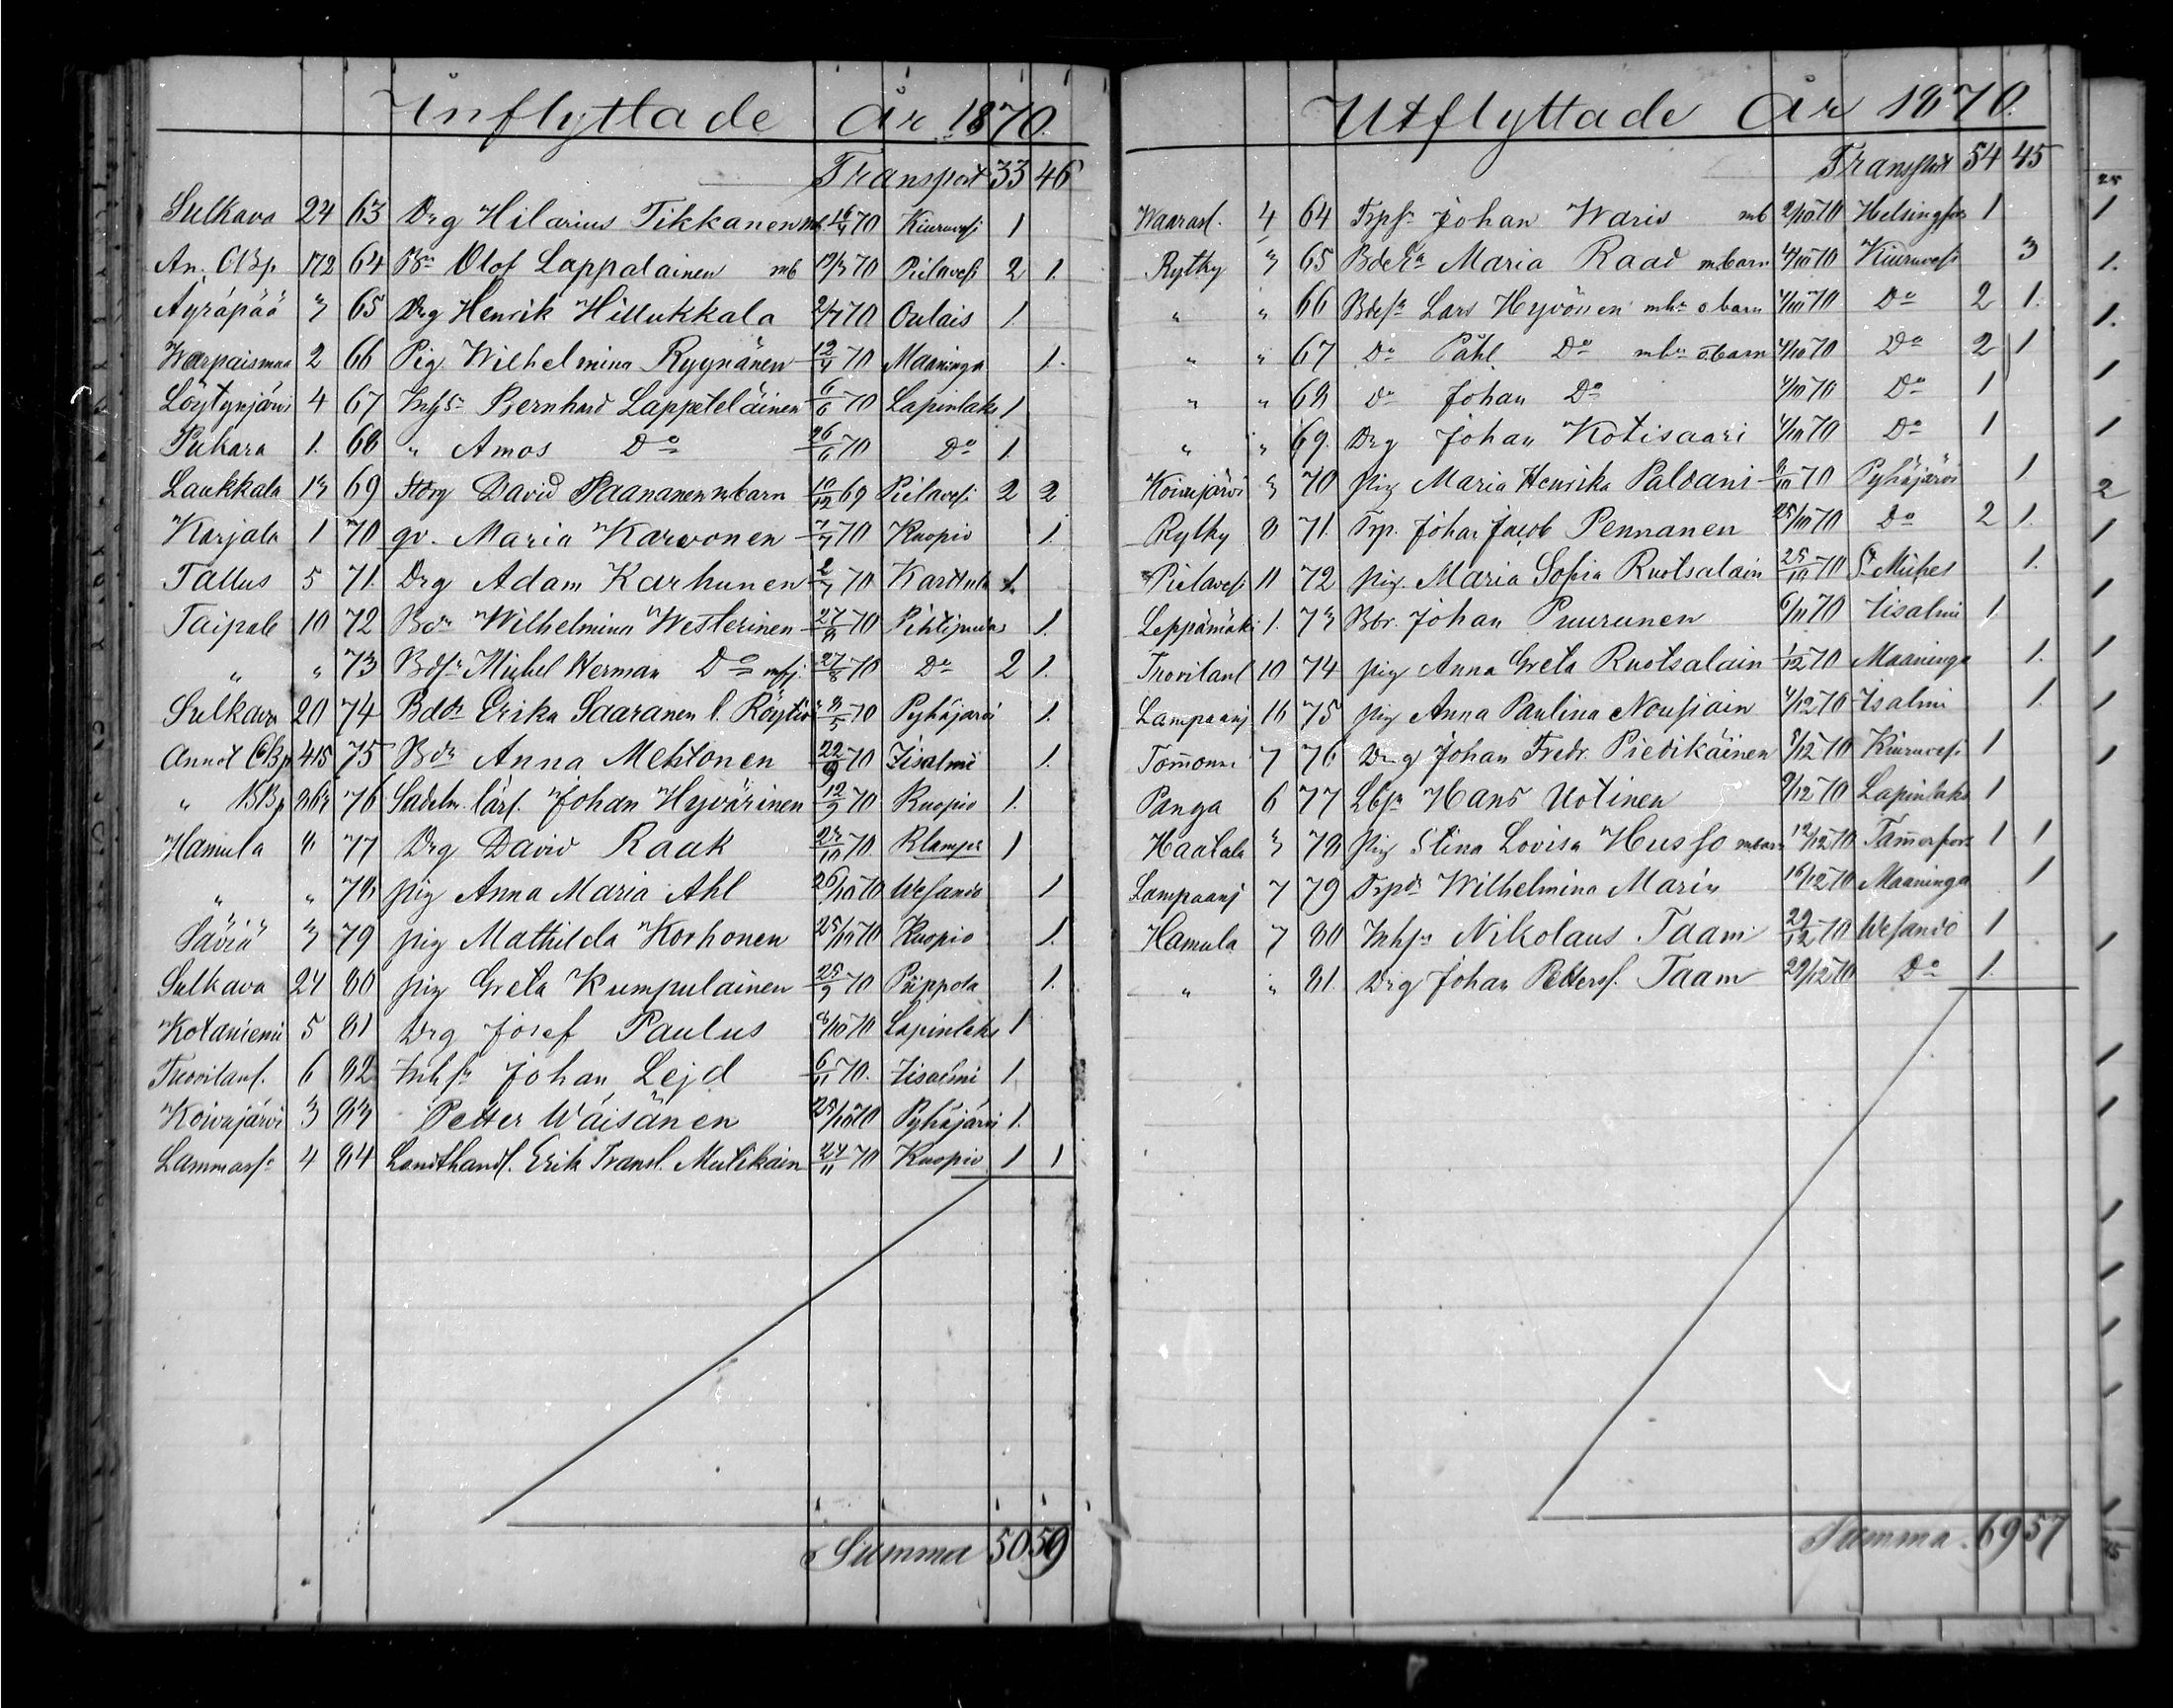 Inflyttade År 1870.
Transport 33 46
Sulkava 24 63 Drg Hilarius Tikkanen mb 16/4 70 Kiuruvesi 1
An. CBp. 172 64 Bdn Olof Lappalainen mb 12/3 70 Pielavesi 2 1.
Äyräpää 3 65 Drg Henrik Hillukkala 2/7 70 Oulais 1.
Warpaismaa 2 66 Pig. Wilhelmina Ryynänen 12/4 70 Maaninga 1.
Löytynjärvi 4 67 Inhsn Bernhard Lappeteläinen 6/6 70 Lapinlaks 1
Pukara 1. 68 " Amos Do 26/6 70 Do 1.
Laukkala 13 69 David Paananen mbarn 10/12 69 Pielavesi 2 2
Karjala 1 70 qv. Maria Karvonen 7/7 70 Kuopio 1.
Tallus 5 71. Drg Adam Karhunen 70 Karttula 1.
Taipale 10 72 Wilhelmina Westerinen 27/8 70 Pihtipudas 1.
" " 73 Bdsn Mickel Herman Do 27/8 70 Do 2 1.
Sulkava 20 74 Bddr Erika Saaranen f. Röytiö 8/5 70 Pyhäjärvi 1.
Annot CBp 415 75 Bdr Anna Mehtonen 22/9 70 Iisalmi 1.
" BBp 263 76 Sadelm. lärl. Johan Hyvärinen 12/9 70 Kuopio 1.
Hamula 8 77 Drg David Raak 23/10 70. Rlampi 1
" " 78 pig Anna Maria Ahl 26/10 70 Wesanto 1
Säviä 3 79 pig Mathilda Korhonen 25/10 70 Kuopio 1.
Sulkava 24 80 pig Greta Kumpulainen 25/9 70 Piippola 1.
Kotaniemi 5 81 Drg Josef Paulus 8/10 70 Lapinlaks 1
Tuovilanl. 6 82 Inhsn Johan Lejd 6/11 70. Iisalmi 1.
Koivujärvi 3 83 Petter Wäisänen 25/10 70 Pyhäjärvi 1.
Lammass. 4 84 Landthandl. Erik Transl. Mutikain 24/11 70 Kuopio 1 1
Summa 50 59
Utflyttade År 1870.
Transport 54 45
Waarasl. 4 64 Trpsn Johan Waris mb 2/10 70 Helsingfors 1
Rytky 3 65 Maria Raad mbarn 4/10 70 Kiuruvesi 3
" " 66 Bdsn Lars Hyvönen mhu o barn 4/10 70 Do 2 1.
" " 67 Do Påhl Do mhu o barn 4/10 70 Do 2 1
" " 68 do Johan Do 4/10 70 Do 1
" " 69. Drg Johan Kotisaari 4/10 70 Do 1
Koivujärvi 3 70 pig Maria Henrika Paldani 9/10 70 Pyhäjärvi 1
Rytky 8 71. Trp. Johan Jacob Pennanen 25/10 70 Do 2 1.
Pielavesi 11 72 pig. Maria Sofia Ruotsalain 25/10 70 St Michel 1.
Leppämäki 1. 73 Bdr. Johan Puurunen 6/11 70 Iisalmi 1.
Tuovilanl 10 74 pig Anna Greta Ruotsalain 1/12 70 Maaninga 1.
Lampaanj 16 75 pig Anna Paulina Nousiain 4/12 70 Isalmi 1.
Tommonn. 7 76 Drg Johan Fredr. Piedikäinen 8/12 70 Kiuruvesi 1
Panga 6 77 Lbsn Hans Uotinen 9/12 70 Lapinlaks 1
Haatala 3 78 pig Stina Lovisa Husso mbarn 12/12 70 Tammerfors 1 1
Lampaanj 7 79 Trpdr Wilhelmina Marin 16/12 70 Maaninga 1
Hamula 7 80 Inhsn Nikolaus Taam 29/12 70 Wesanto 1
" " 81. Drg Johan Petterss. Taam 29/12 70 Do 1.
Summa. 69 57